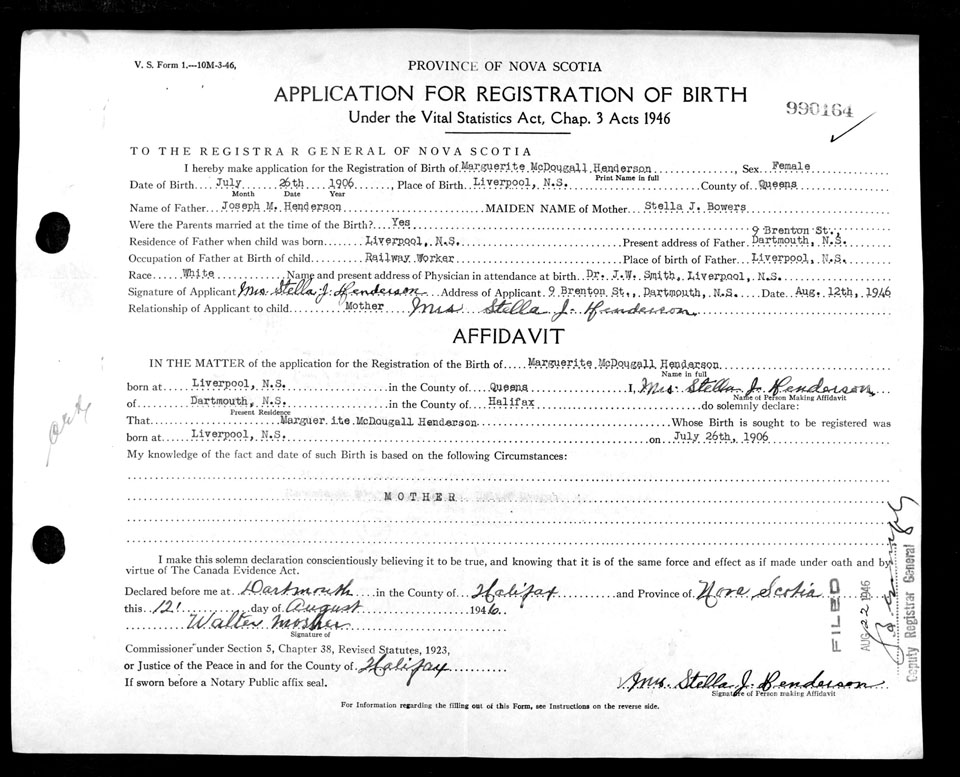 V. S. Form 1.---10M-3-46.
PROVINCE OF NOVA SCOTIA
APPLICATION FOR REGISTRATION OF BIRTH
990164
Under the Vital Statistics Act, Chap. 3 Acts 1946
TO THE REGISTRAR GENERAL OF NOVA SCOTIA
I hereby make application for the Registration of Birth of Marguerite McDougall Henderson, Sex Female
Print Name in full
Date of Birth July 26th 1906, Place of Birth Liverpool, N.S. County of Queens
Month Date Year
Name of Father Joseph M. Henderson MAIDEN NAME of Mother Stella J. Bowers
Were the Parents married at the time of the Birth? Yes
9 Brenton St.,
Residence of Father when child was born Liverpool, N.S. Present address of Father Dartmouth, N.S.
Occupation of Father at Birth of child Railway Worker Place of birth of Father Liverpool, N.S.
Race White Name and present address of Physician in attendance at birth Dr. J.W. Smith, Liverpool, N.S.
Signature of Applicant Mrs Stella J. Henderson Address of Applicant 9 Brenton St., Dartmouth, N.S. Date Aug. 12th, 1946
Relationship of Applicant to child Mother Mrs Stella J. Henderson
AFFIDAVIT
IN THE MATTER of the application for the Registration of the Birth of Marguerite McDougall Henderson
Name in full
born at Liverpool, N.S. in the County of Queens I, Mrs. Stella J. Henderson
Name of Person Making Affidavit
of Dartmouth, N.S. in the County of Halifax do solemnly declare:
Present Residence
That Marguer ite McDougall Henderson Whose Birth is sought to be registered was
born at Liverpool, N.S. on July 26th, 1906
My knowledge of the fact and date of such Birth is based on the following Circumstances:
MOTHER
I make this solemn declaration conscientiously believing it to be true, and knowing that it is of the same force and effect as if made under oath and by
virtue of The Canada Evidence Act.
Declared before me at Dartmouth in the County of Halifax and Province of Nova Scotia
this 12' day of August 1946
Walter Mosher
Signature of
Commissioner under Section 5, Chapter 38, Revised Statutes, 1923,
or Justice of the Peace in and for the County of Halifax
If sworn before a Notary Public affix seal.
Mrs. Stella J. Henderson
Signature of Person making Affidavit
For Information regarding the filling out of this Form, see Instructions on the reverse side.
FILED
AUG 22 1946
Deputy Registrar General